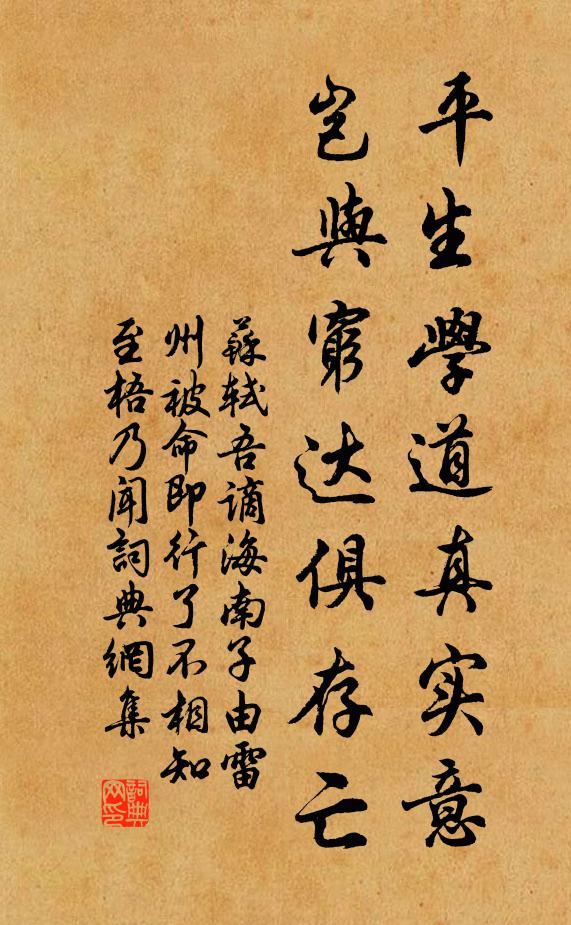 平生學道真实意
豈與窮达俱存亡
蘇軾吾謫海南子由雷
州被命即行了不相知
至梧乃闻詞典網集
詞典
网印